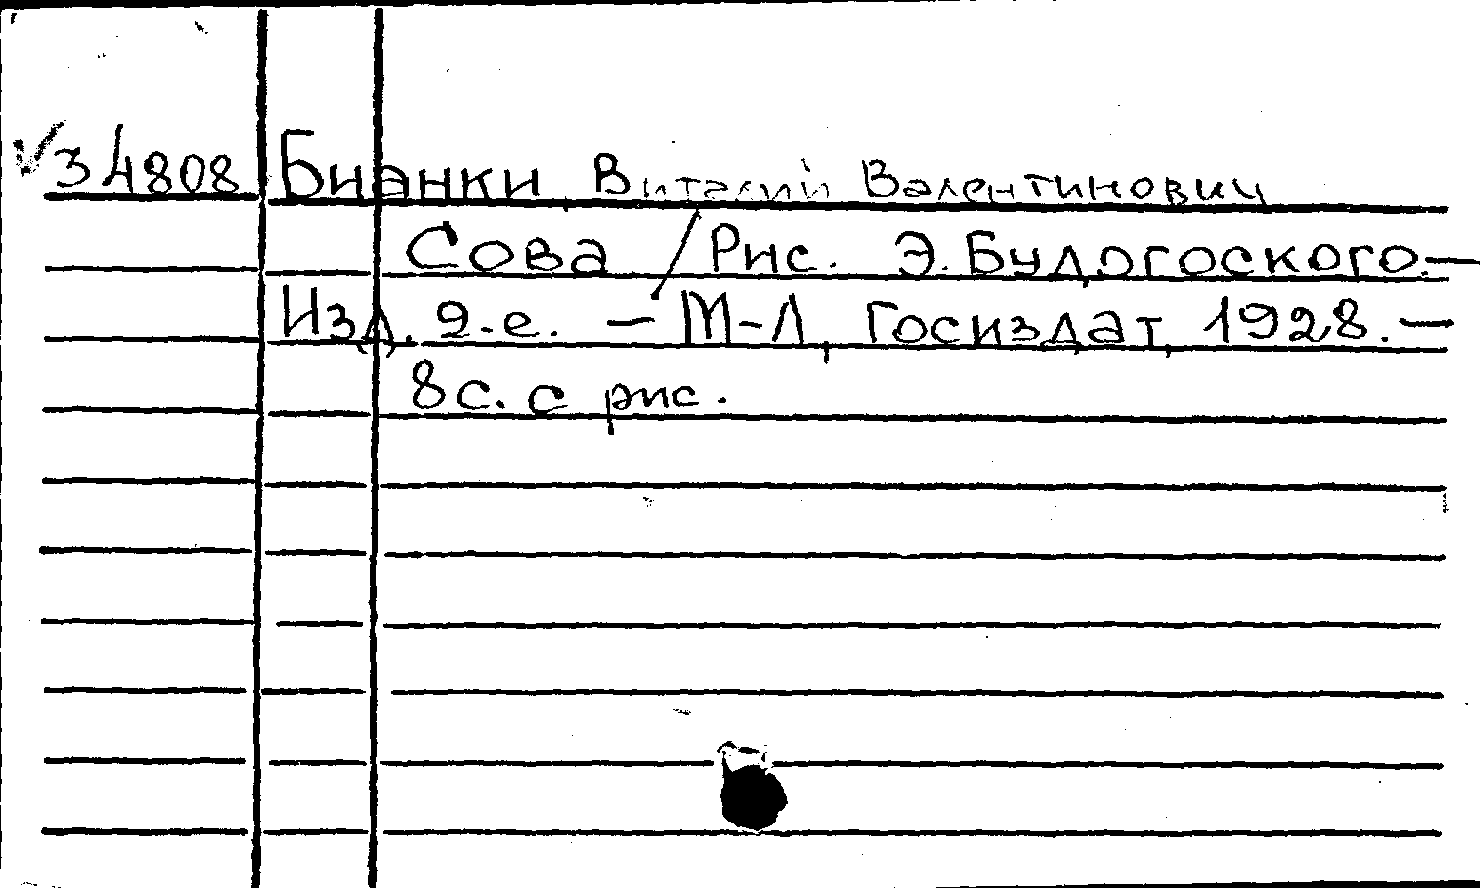 34808 Бианки, Виталий Валентинович
Сова / Рис. Э. Будогоского. —
Изд. 2-е. — М-Л, Госиздат, 1928. —
8с. с рис.